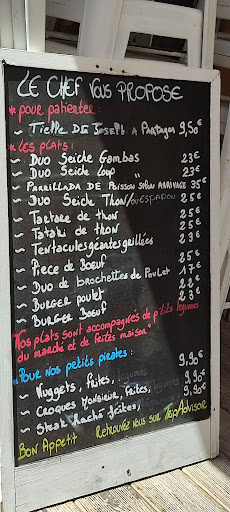 LE CHEF VOUS PROPOSE
* pour patienter :
~ TIELLE DE JOSEPH A Partager 9,50€
* LES PLATS :
~ DUO Seiche Gambas 23€
~ DUO Seiche Loup 23€
~ PARRILLADA DE POISSON SELON ARRIVAGE 35€
~ DUO Seiche Thon/ou ESPADON 25€
~ Tartare de thon 25€
~ Tataki de thon 25€
~ Tentacules géantes grillées 29€
~ Piece de Boeuf 25€
~ Duo de brochettes de Poulet 17€
~ BURGER poulet 22€
~ BURGER Boeuf 23€
Nos plats sont accompagnés de p'tits legumes
du marché et de frites maison"
*Pour nos petits pirates :
~ Nuggets, frites, legumes 9,90€
~ Croques Monsieur, frites, 9,90€
~ Steak Haché frites, 9,90€
BON Appetit Retrouvez vous sur TripAdvisor